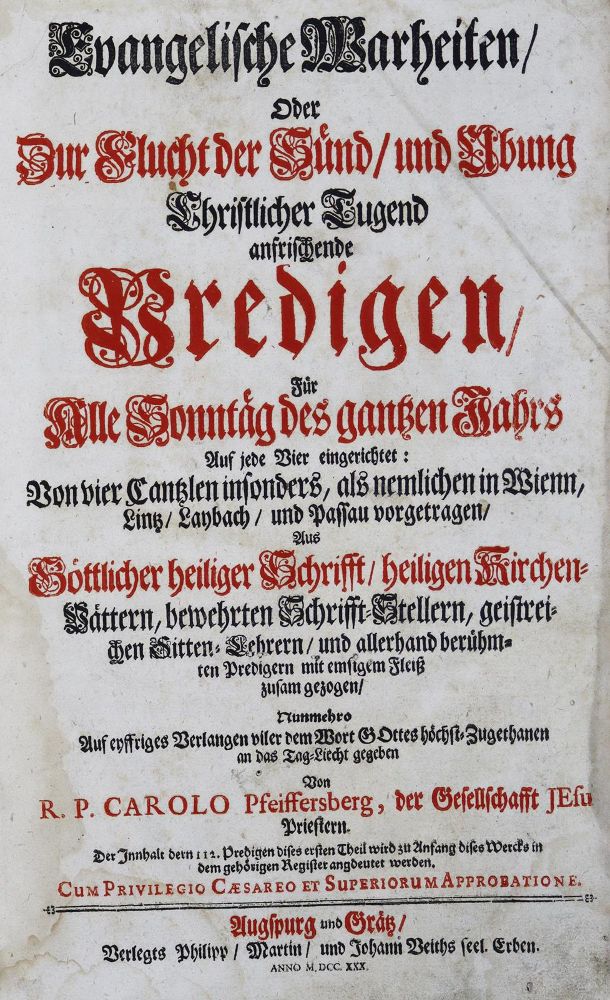 Evangelische Warheiten/
Oder
Zur Flucht der Sünd/ und Ubung
Christlicher Tugend
anfrischende
Predigen/
Für
Alle Sonntäg des gantzen Jahrs
Auf jede Vier eingerichtet:
Von vier Cantzlen insonders, als nemlichen in Wienn,
Lintz/ Laybach/ und Passau vorgetragen/
Aus
Göttlicher heiliger Schrifft/ heiligen Kirchen-
Vättern, bewehrten Schrifft-Stellern, geistrei-
chen Sitten-Lehrern/ und allerhand berühm-
ten Predigern mit emsigem Fleiß
zusam gezogen/
Nunmehro
Auf eyffriges Verlangen viler dem Wort GOttes höchst-Zugethanen
an das Tag-Liecht gegeben
Von
R. P. CAROLO Pfeiffersberg, der Gesellschafft JEsu
Priestern.
Der Innhalt dern 112. Predigen dises ersten Theil wird zu Anfang dises Wercks in
dem gehörigen Register angdeutet werden.
CUM PRIVILEGIO CÆSAREO ET SUPERIORUM APPROBATIONE.
Augspurg und Grätz/
Verlegts Philipp/ Martin/ und Johann Veiths seel. Erben.
ANNO M.DCC.XXX.